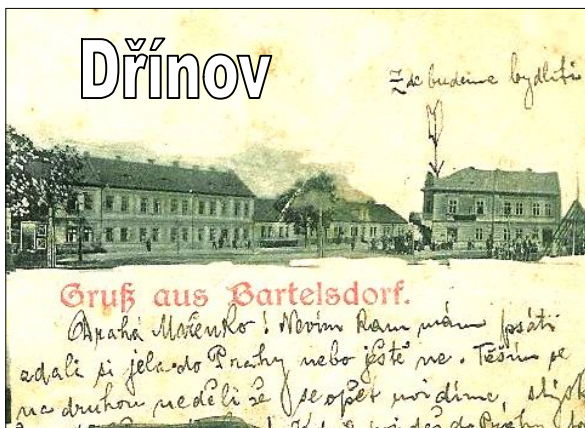 Dřínov
Zde budeme bydliti
Gruß aus Bartelsdorf.
Drahá Mařenko! Nevím kam mám psáti
zdali si jela do Prahy nebo ještě ne. Těším se
na druhou neděli že se opět uvidíme,